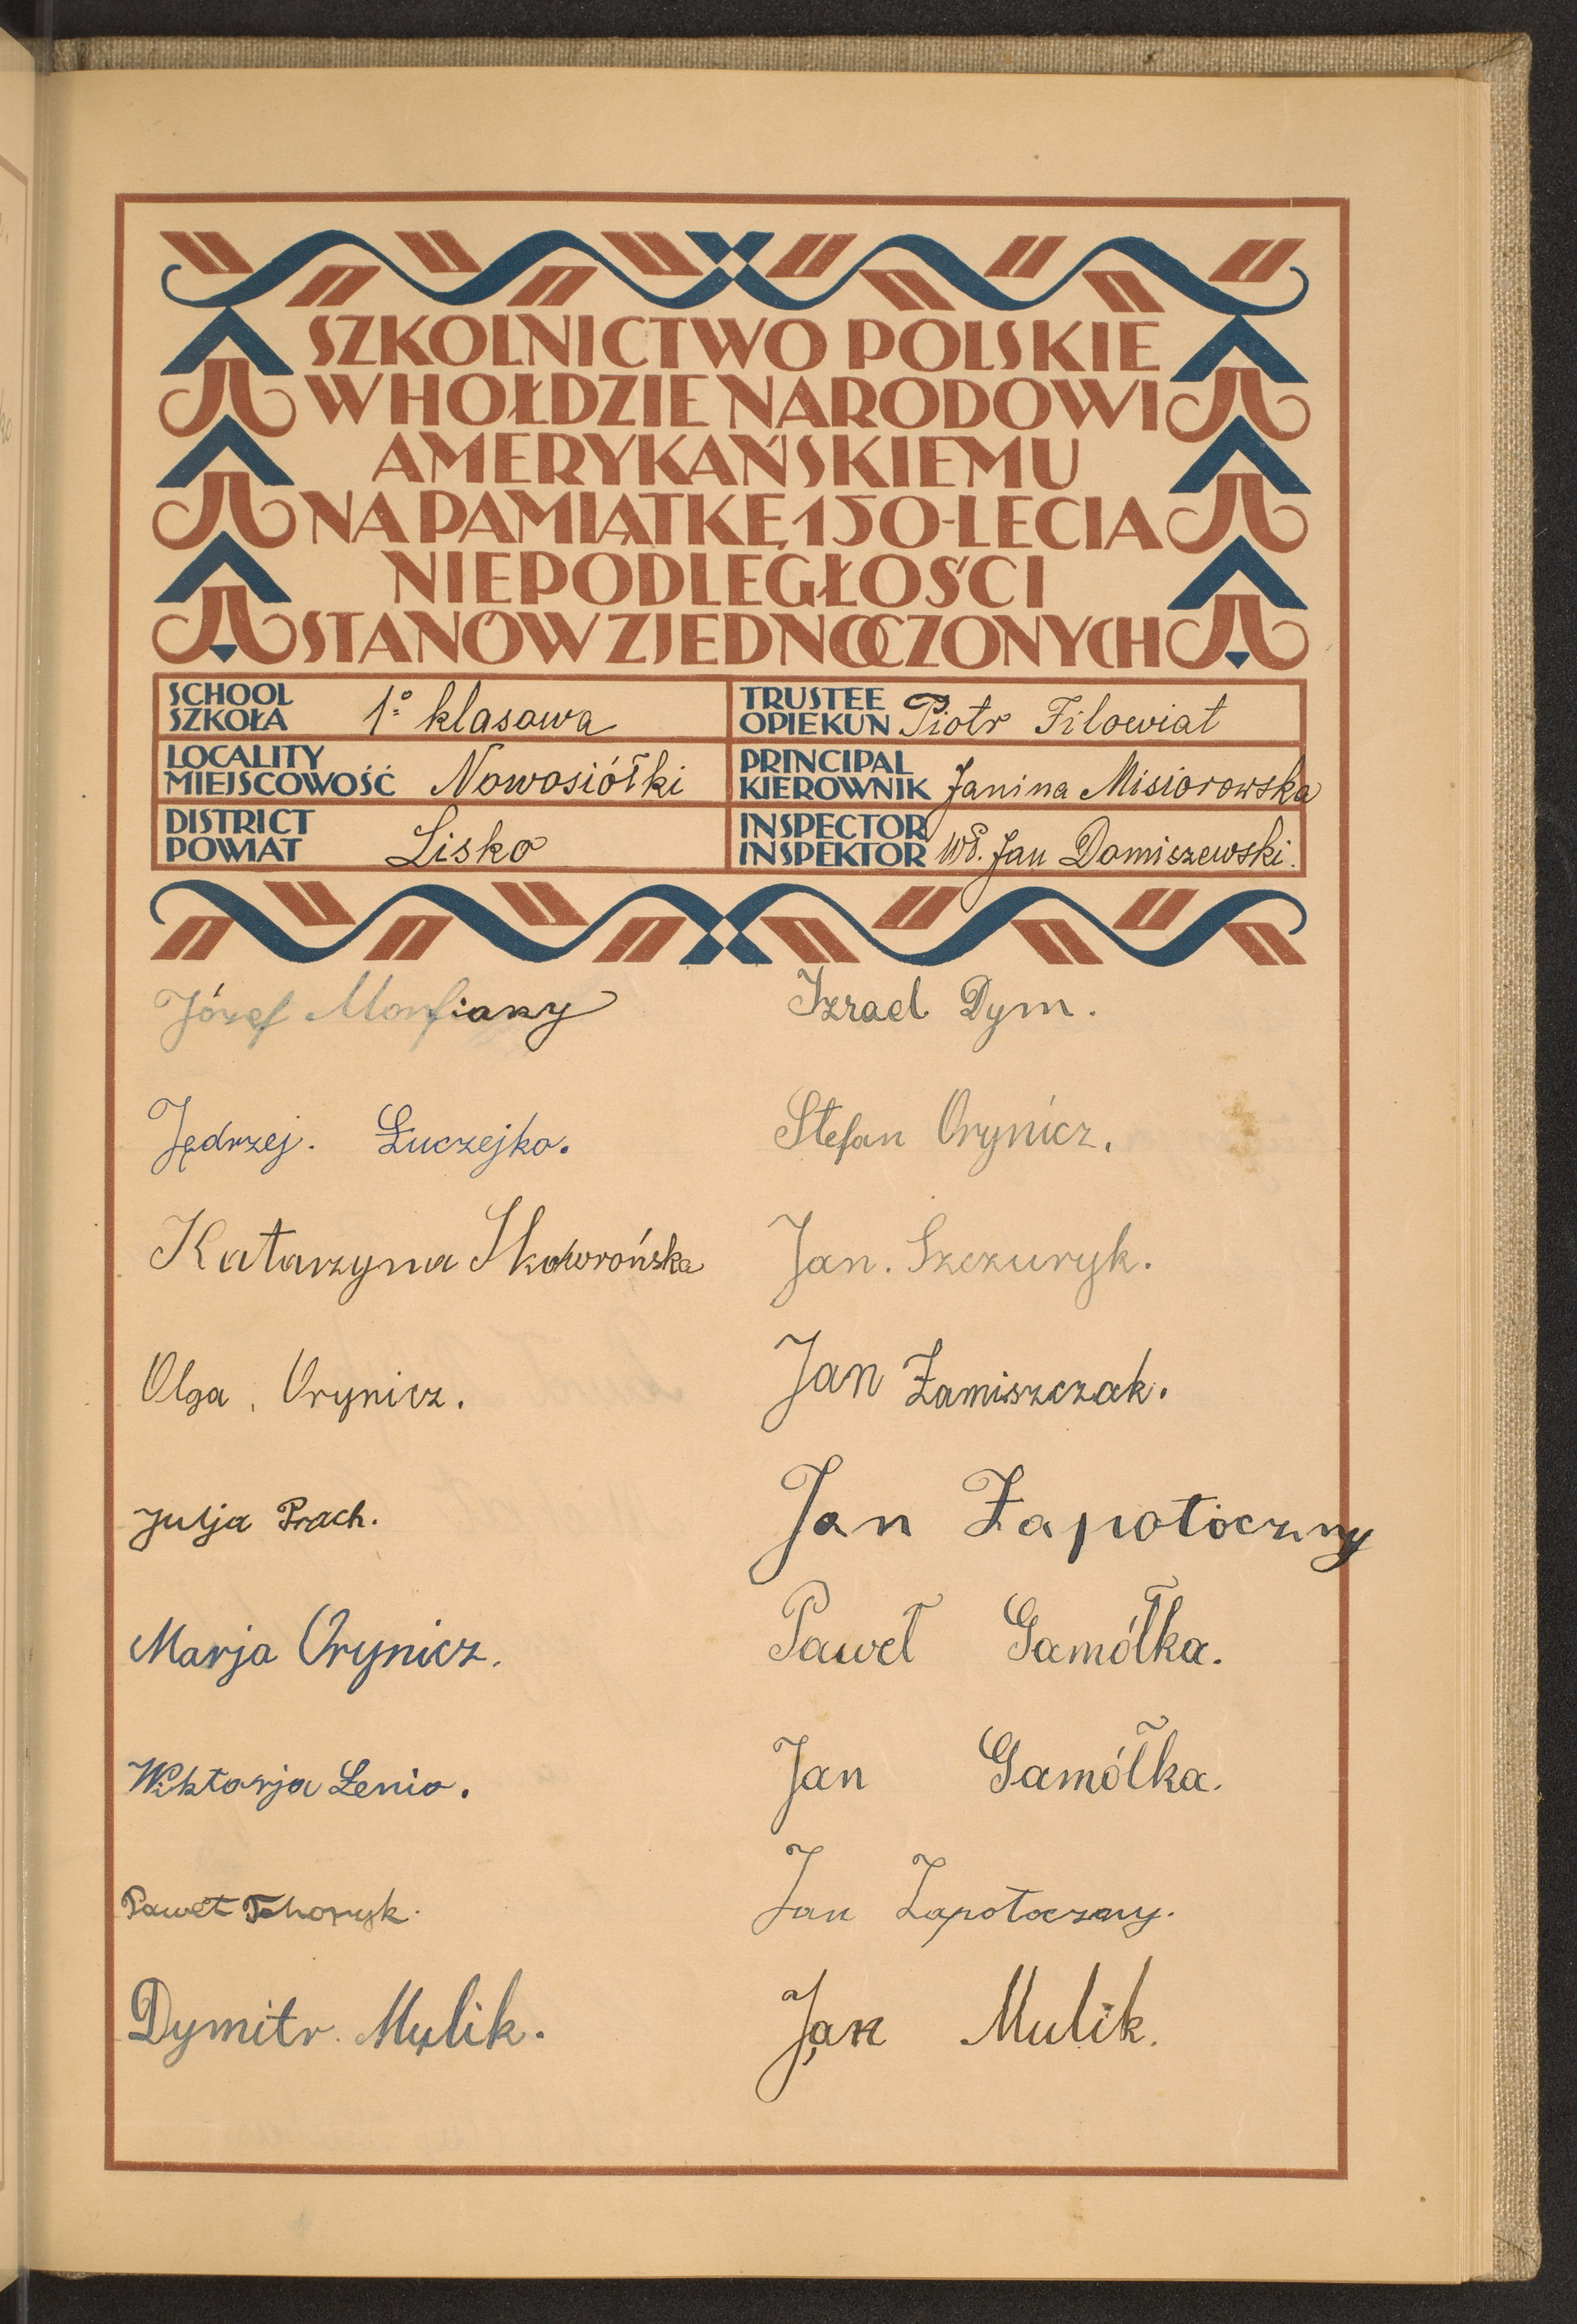 SZKOLNICTWO POLSKIE
W HOŁDZIE NARODOWI
AMERYKAŃSKIEMU
NA PAMIĄTKĘ 150-LECIA
NIEPODLEGŁOŚCI
STANÓW ZJEDNOCZONYCH
SCHOOL
SZKOŁA 1º klasowa
TRUSTEE
OPIEKUN Piotr Filowiat
LOCALITY
MIEJSCOWOŚĆ Nowosiółki
PRINCIPAL
KIEROWNIK Janina Misiorowska
DISTRICT
POWIAT Lisko
INSPECTOR
INSPEKTOR WP. Jan Domiszewski.
Józef Monfiany
Jędrzej. Łuczejko.
Katarzyna Skowrońska
Olga, Orynicz.
Julja Prach.
Marja Orynicz.
Wiktorja Lenio.
Paweł Tchoryk.
Dymitr. Mulik.
Izrael Dym.
Stefan Orynicz.
Jan. Szczuryk.
Jan Zamiszczak.
Jan Zapotoczny
Paweł Gamółka.
Jan Gamółka.
Jan Zapotoczny.
Jan Mulik.